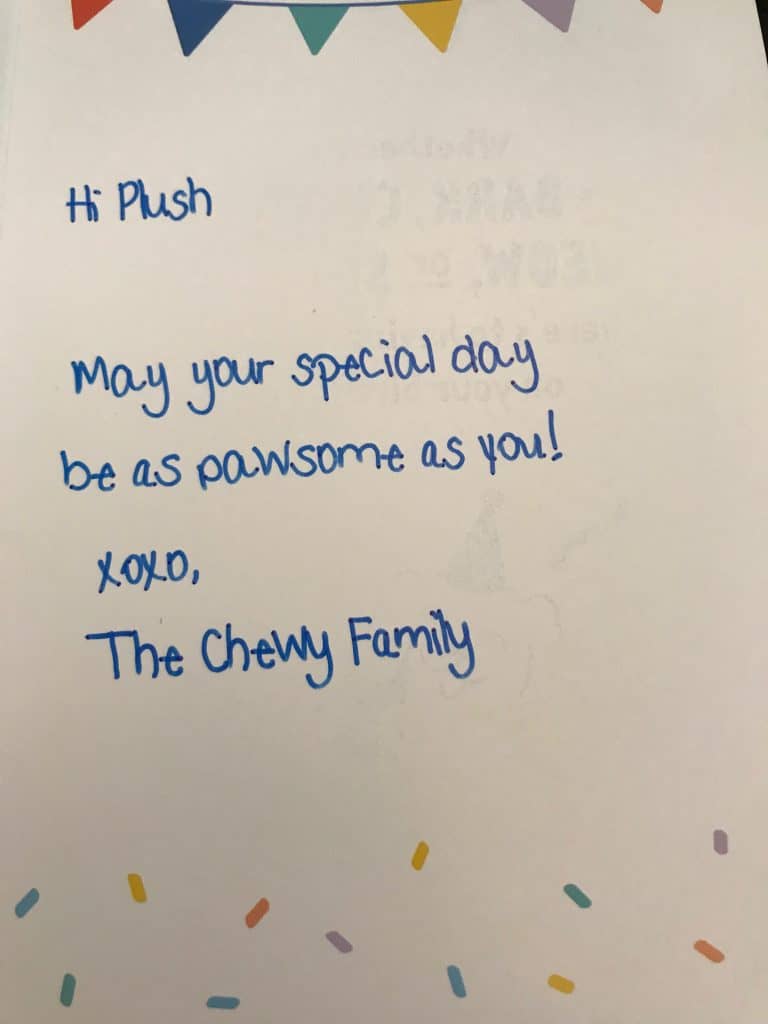 Hi Plush
May your special day
be as pawsome as you!
xoxo,
The Chewy Family